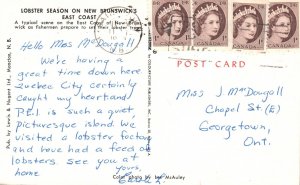 LOBSTER SEASON ON NEW BRUNSWICK'S
EAST COAST
A typical scene on the East Coast of New Bruns-
wick as fishermen prepare to set their lobster
Hello Miss McDougall
We're having a
great time down here
Quebec City certainly
caught my heart and
P.E.I is such a quiet
picturesque island. We
visited a lobster factory
and have had a feed on
lobsters. See you at
home.
Color Photo by Lee McAuley
Pub. by Lewis & Nugent Ltd., Moncton, N.B.
CANADA CANADA CANADA CANADA
POST CARD
Miss J McDougall
Chapel St (E)
Georgetown,
Ont.